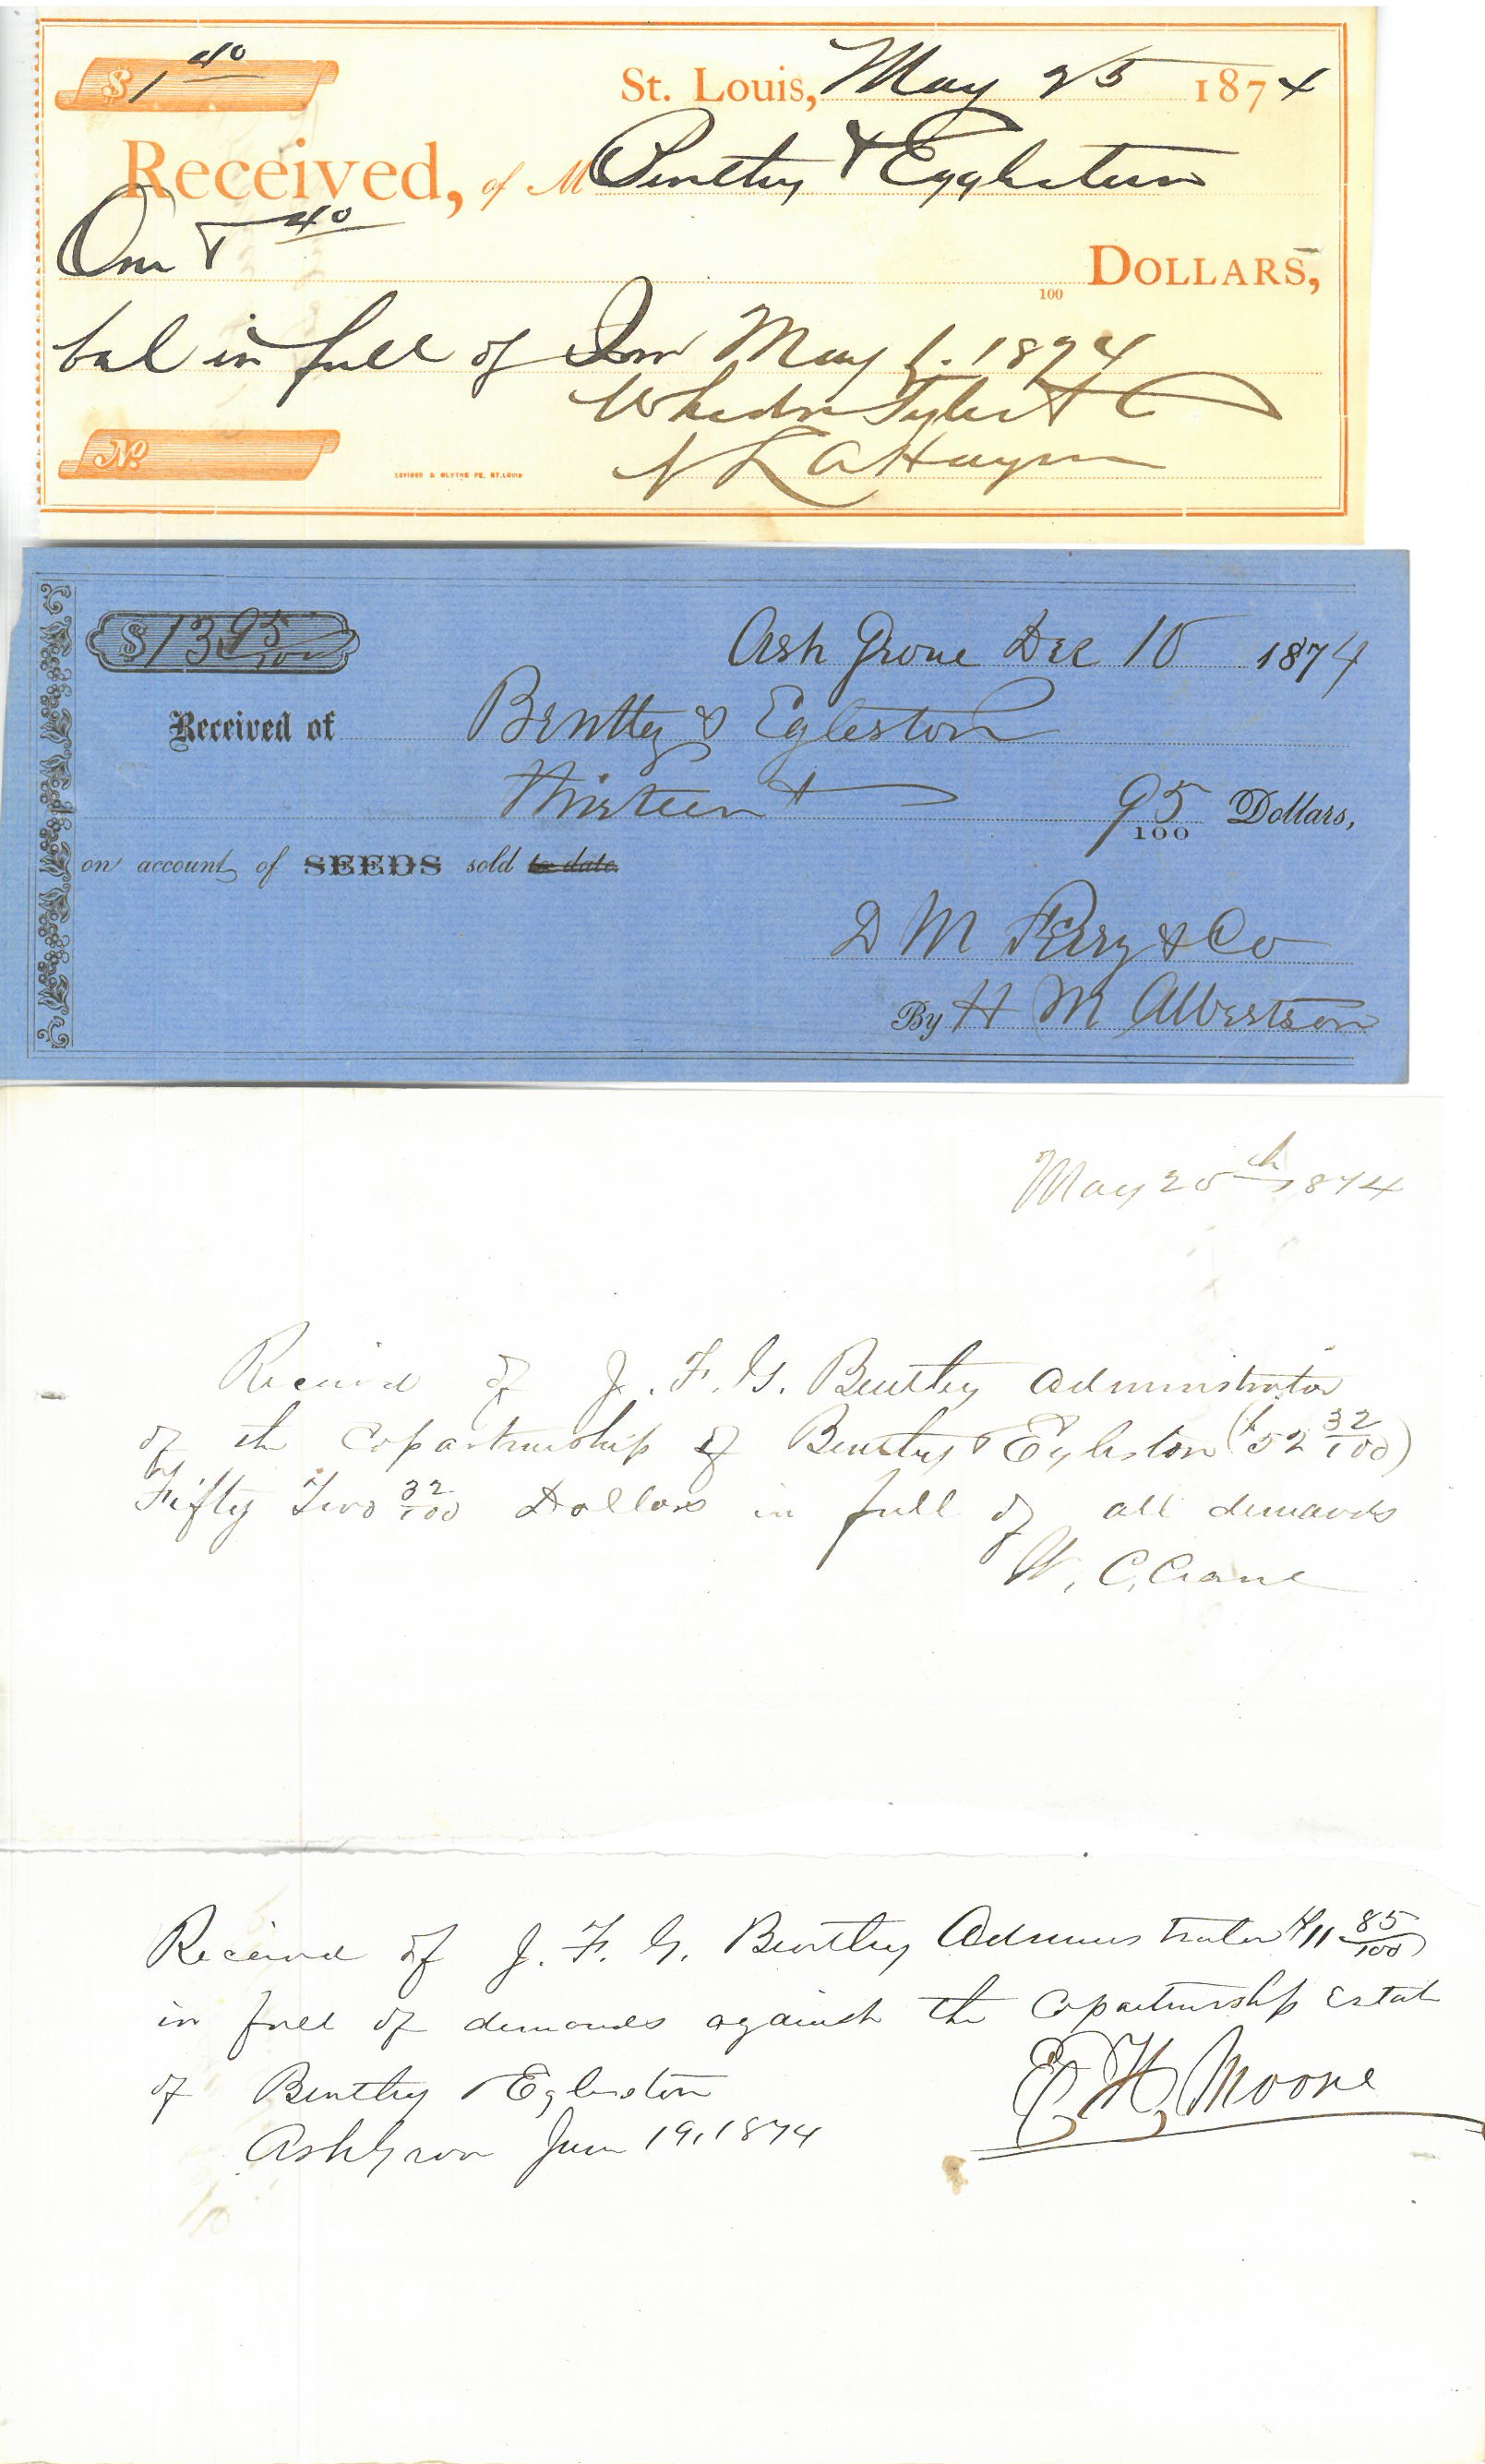 $1 40
St. Louis, May 25 1874
Received, of M Bentley & Eggleston
One & 40
100 DOLLARS,
bal in full of Inv May 1. 1874
Whedon Tyler & C
No.
LEVISON & BLYTHE PR. ST. LOUIS
$13 95/100
Ash Grove Dec 10 1874
Received of Bentley & Egleston
Thirteen & 95/100 Dollars,
on account of SEEDS sold to date.
D M Ferry & Co
By H M Albertson
May 20th 1874
Received of J. F. G. Bentley Administrator
of the Copartnership of Bentley & Egleston ($52 32/100)
Fifty Two 32/100 Dollars in full of all demands
W. C. Crane
Received of J. F. G. Bentley Administrator $11 85/100
in full of demands against the Copartnership Estate
of Bentley & Egleston
E. H. Moore
Ash Grove June 19, 1874